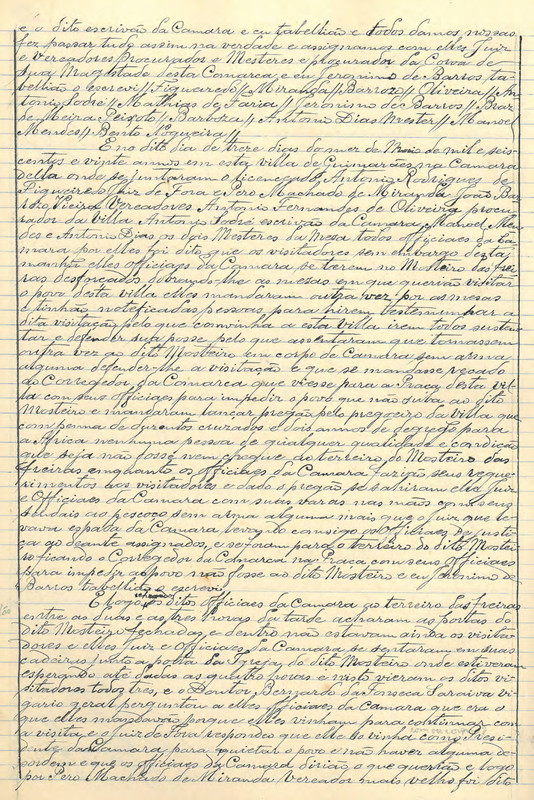 e o dito escrivão da Camara e eu tabelhão e todos damos nossas
fez passar tudo assim na verdade e assignamos com elles Juiz
e Vereadores Procurador e Mesteres e procurador da Coroa de
Sua Magestade desta Comarca, e eu Jeronimo de Barros ta-
belhão o escrevi // Figueiredo // Miranda // Barrozo // Oliveira // An-
tonio Sodré // Mathias de Faria // Jeronimo de Barros // Braz
de Meira Peixoto // Barboza // Antonio Dias Mester // Manoel
Mendes // Bento Nogueira //
E no dito dia de treze dias do mez de Maio de mil e seis
centos e vinte annos em esta villa de Guimarães na Camara
della onde se juntaram o licenceado Antonio Rodrigues de
Figueiredo Juiz de Fora e Pero Machado de Miranda, João Ba-
Vieira Vereadores Antonio Fernandes de Oliveira procu-
rador da Villa Antonio Sodré escrivão da Camara, Manoel Men-
des e Antonio Dias, os dois Mesteres da Meza todos officiaes da Ca-
mara por elles foi dito que os visitadores sem embargo desta
manhã elles officiaes da Camara se terem no Mosteiro das frei-
ras desforçados dobrando-lhe as mesas em que querião visitar
o povo desta villa elles mandaram outra vez por as mesas
e tinhão noteficadas pessoas para hirem testemunhar a
dita visitação pelo que convinha a esta villa irem todos susten-
tar e defender sua posse pelo que assentaram que tornassem
outra vez ao dito Mosteiro em corpo de Camara sem arma
alguma defender-lhe a visitação e que se mandasse recado
ao Corregedor da Comarca que viesse para a Praça desta vil-
la com seus officiaes para impedir o povo que não suba ao dito
Mosteiro e mandaram lançar pregão pelo pregoeiro da villa que
com penna de duzentos cruzados e dois annos de degredo para
a Africa nenhuma pessoa de qualquer qualidade e condição
que seja não fosse nem chegue ao terreiro do Mosteiro das
freiras emquanto os officiaes da Camara farião seus reque-
rimentos aos visitadores e dado o pregão se sahiram elle Juiz
e Officiaes da Camara com suas varas nas mãos com seus
ao pescoço sem arma alguma mais que o juiz que le-
vava espada da Camara levando comsigo os officiaes de justi-
ça ao deante assignados, e se foram para o terreiro do dito Mostei-
ro ficando o Corregedor da Comarca na Praça com seus officiaes
para impedir ao povo não fosse ao dito Mosteiro e eu Jeronimo de
Barros tabelhão o escrevi
E logo os ditos officiaes da Camara ao terreiro das freiras
entre as duas e as tres horas da tarde acharam as portas do
dito Mosteiro fechadas, e dentro não estavam ainda os visita-
dores e elles Juiz e Officiaes da Camara, se sentaram em suas
cadeiras junto á porta da Igreja do dito Mosteiro onde estiveram
esperando até dadas as quatro horas e nisto vieram os ditos vi-
sitadores todos tres, e o Doutor Bernardo da Fonseca Saraiva vi-
gario geral perguntou a elles officiaes da Camara que era o
que elles mandavão porque elles vinham para continuar com
a visita, e o juiz de Fora respondeu que elle lhe vinha como Presi-
dente da Camara para quietar o povo e não haver alguma de-
sordem e que os officiaes da Camara dirião o que querião e logo
por Pero Machado de Miranda Vereador mais velho foi dito